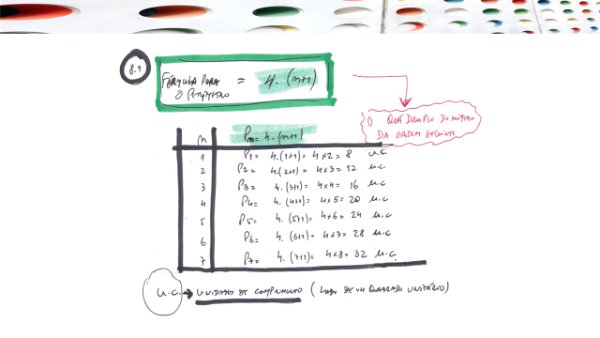 8.1
FÓRMULA PARA O PERÍMETRO = 4. (n+1)
O QUÁDRUPLO DO NÚMERO
DA ORDEM SEGUINTE
n Pn= 4. (n+1)
1 P1= 4. (1+1) = 4x2 = 8 u.c
2 P2= 4. (2+1) = 4x3 = 12 u.c
3 P3= 4. (3+1) = 4x4 = 16 u.c
4 P4= 4. (4+1) = 4x5 = 20 u.c
5 P5= 4. (5+1) = 4x6 = 24 u.c
6 P6= 4. (6+1) = 4x7 = 28 u.c
7 P7= 4. (7+1) = 4x8 = 32 u.c.
u.c. → UNIDADES DE COMPRIMENTO (LADO DE UM QUADRADO UNITÁRIO)